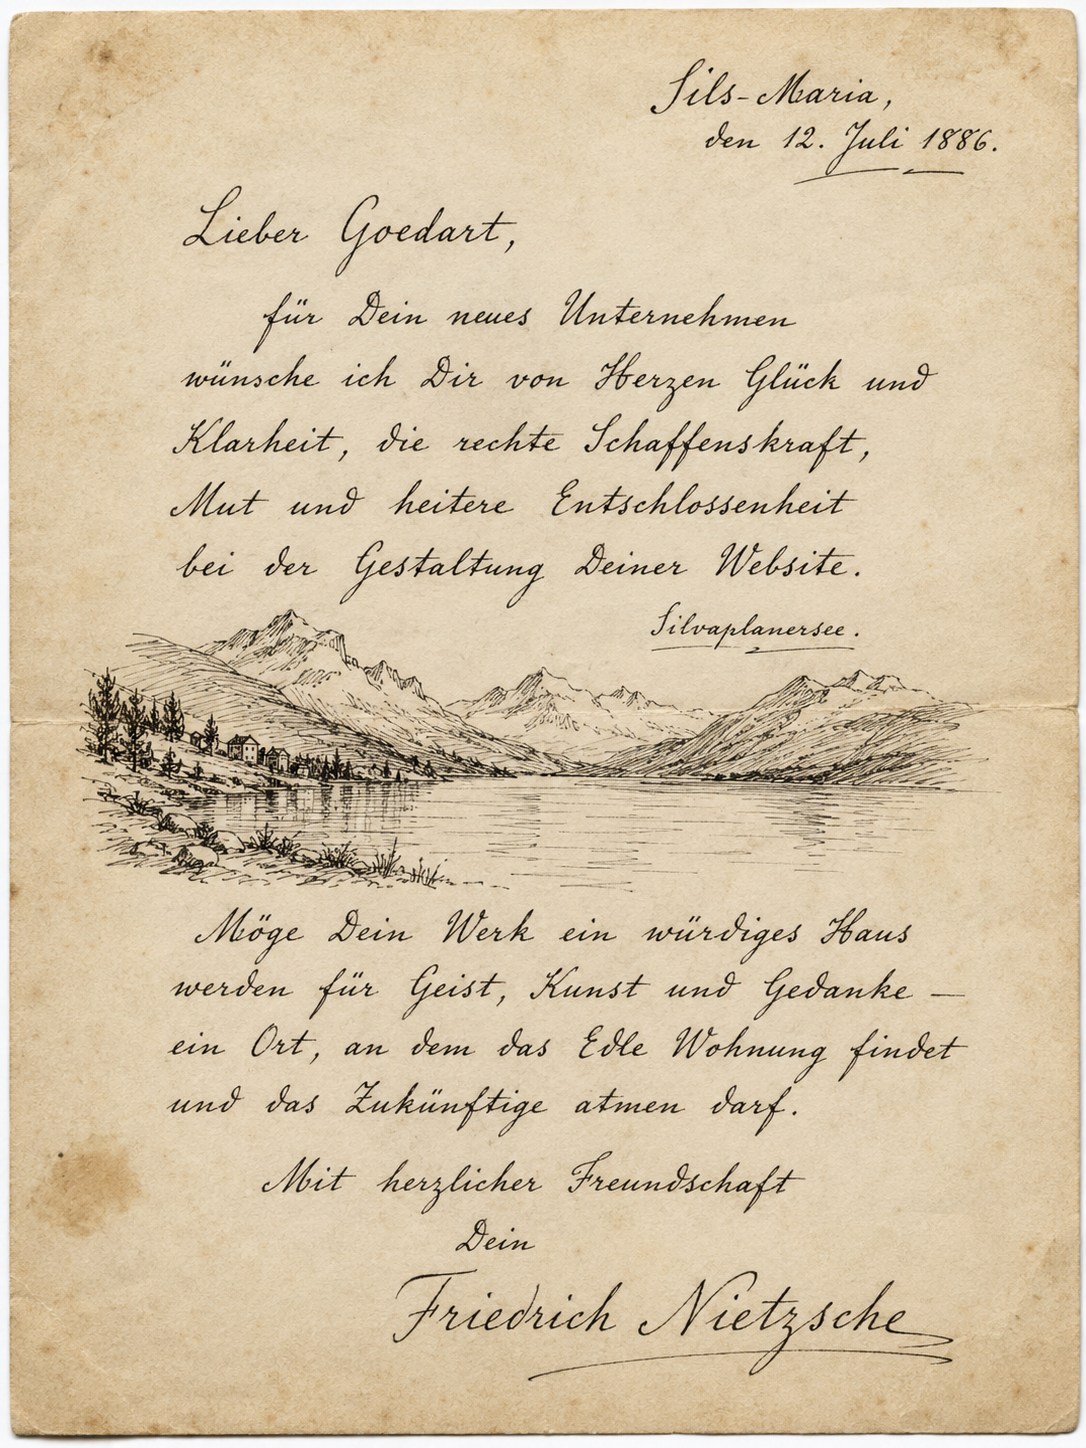 Sils-Maria,
den 12. Juli 1886.
Lieber Goedart,
für Dein neues Unternehmen
wünsche ich Dir von Herzen Glück und
Klarheit, die rechte Schaffenskraft,
Mut und heitere Entschlossenheit
bei der Gestaltung Deiner Website.
Silvaplanersee.
Möge Dein Werk ein würdiges Haus
werden für Geist, Kunst und Gedanke –
ein Ort, an dem das Edle Wohnung findet
und das Zukünftige atmen darf.
Mit herzlicher Freundschaft
Dein
Friedrich Nietzsche